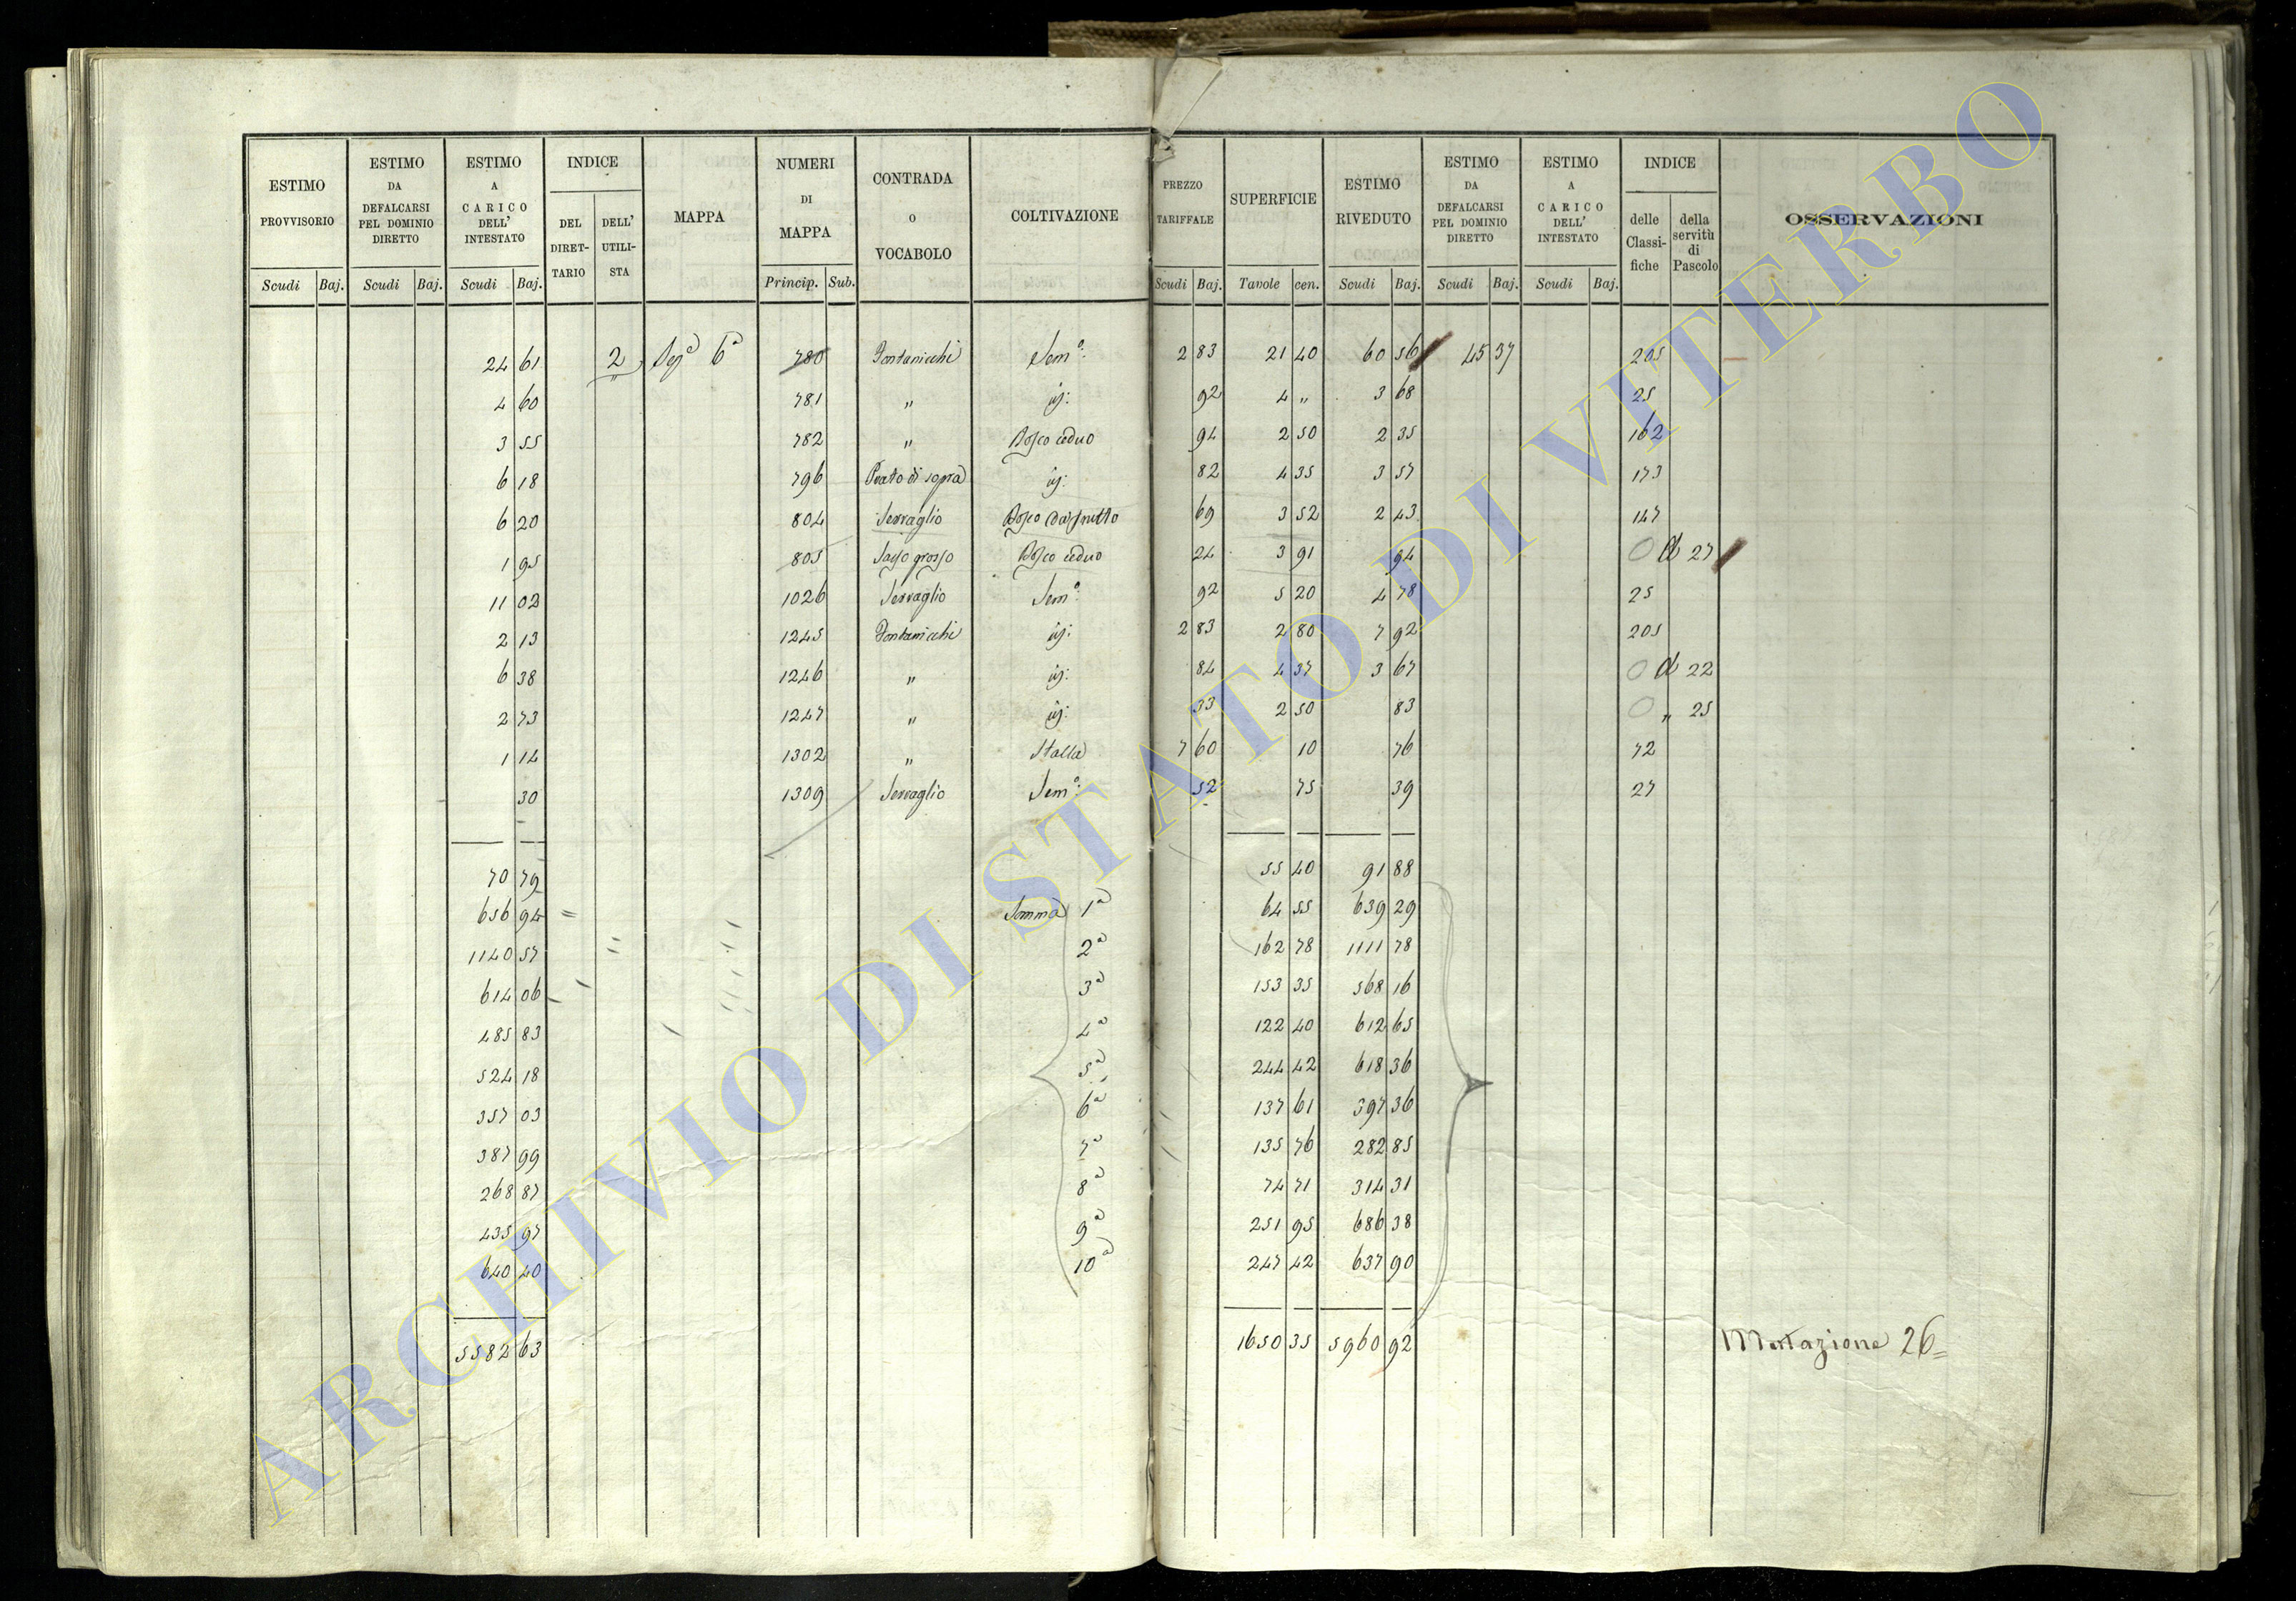 ESTIMO PROVVISORIO Scudi Baj. | ESTIMO DA DEFALCARSI PEL DOMINIO DIRETTO Scudi Baj. | ESTIMO A CARICO DELL' INTESTATO Scudi Baj. | INDICE DEL DIRET-TARIO DELL' UTILI-STA | MAPPA | NUMERI DI MAPPA Princip. Sub. | CONTRADA O VOCABOLO | COLTIVAZIONE | PREZZO TARIFFALE Scudi Baj. | SUPERFICIE Tavole cen. | ESTIMO RIVEDUTO Scudi Baj. | ESTIMO DA DEFALCARSI PEL DOMINIO DIRETTO Scudi Baj. | ESTIMO A CARICO DELL' INTESTATO Scudi Baj. | INDICE delle Classi-fiche della servitù di Pascolo | OSSERVAZIONI
24 61 2 Seg.a 6a 780 Fontanicchi Sem.o: 2 83 21 40 60 56 45 37 205
4 60 781 " id: 92 4 " 3 68 25
3 55 782 " Bosco ceduo 94 2 50 2 35 162
6 18 796 Prato di sopra id: 82 4 35 3 57 173
6 20 804 Serraglio Bosco da frutto 69 3 52 2 43 147
1 95 805 Sasso grosso Bosco ceduo 24 3 91 94 0 d 27
11 02 1026 Serraglio Sem.o: 92 5 20 4 78 25
2 13 1245 Fontanicchi id: 2 83 2 80 7 92 205
6 38 1246 " id: 84 4 37 3 67 0 d 22
2 73 1247 " id: 33 2 50 83 0 " 25
1 14 1302 " Stalla 7 60 10 76 72
30 1309 Serraglio Sem.o: 52 75 39 27
70 79 55 40 91 88
656 94 Somma 1a 64 55 639 29
1140 57 2a 162 78 1111 78
614 06 3a 153 35 568 16
485 83 4a 122 40 612 65
524 18 5a 244 42 618 36
357 03 6a 137 61 397 36
387 99 7a 135 76 282 85
268 87 8a 74 71 314 31
435 97 9a 251 95 686 38
640 40 10a 247 42 637 90
5582 63 1650 35 5960 92 Mutazione 26
ARCHIVIO DI STATO DI VITERBO